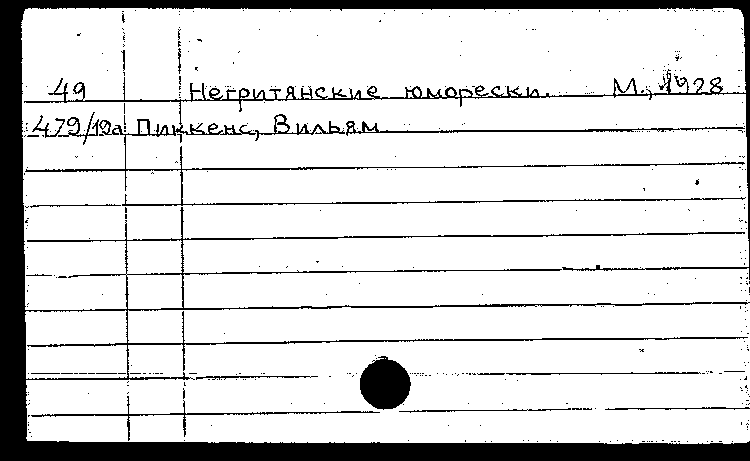 49 Негритянские юморески. М., 1928
479/19а Пиккенс, Вильям